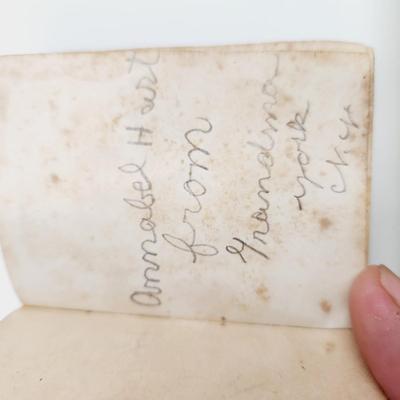 Annabel Hart
from
Grandma
York